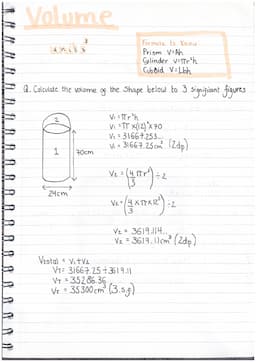 Volume
units³
Formula to Know
Prism V=Ah
Cylinder V=πr²h
Cuboid V=Lbh
Q. Calculate the volume of the shape below to 3 significant figures
2
1
70cm
24cm
V₁ = πr²h
V₁ = π×(12)²×70
V₁ = 31667.253...
V₁ = 31667.25cm³ (2dp)
V₂ = (4/3 πr³) ÷2
V₂ = (4/3 ×π×12³) ÷2
V₂ = 3619.114...
V₂ = 3619.11cm³ (2dp)
Vtotal = V₁+V₂
VT = 31667.25+3619.11
VT = 35286.36
VT = 35300cm³ (3.s.f)